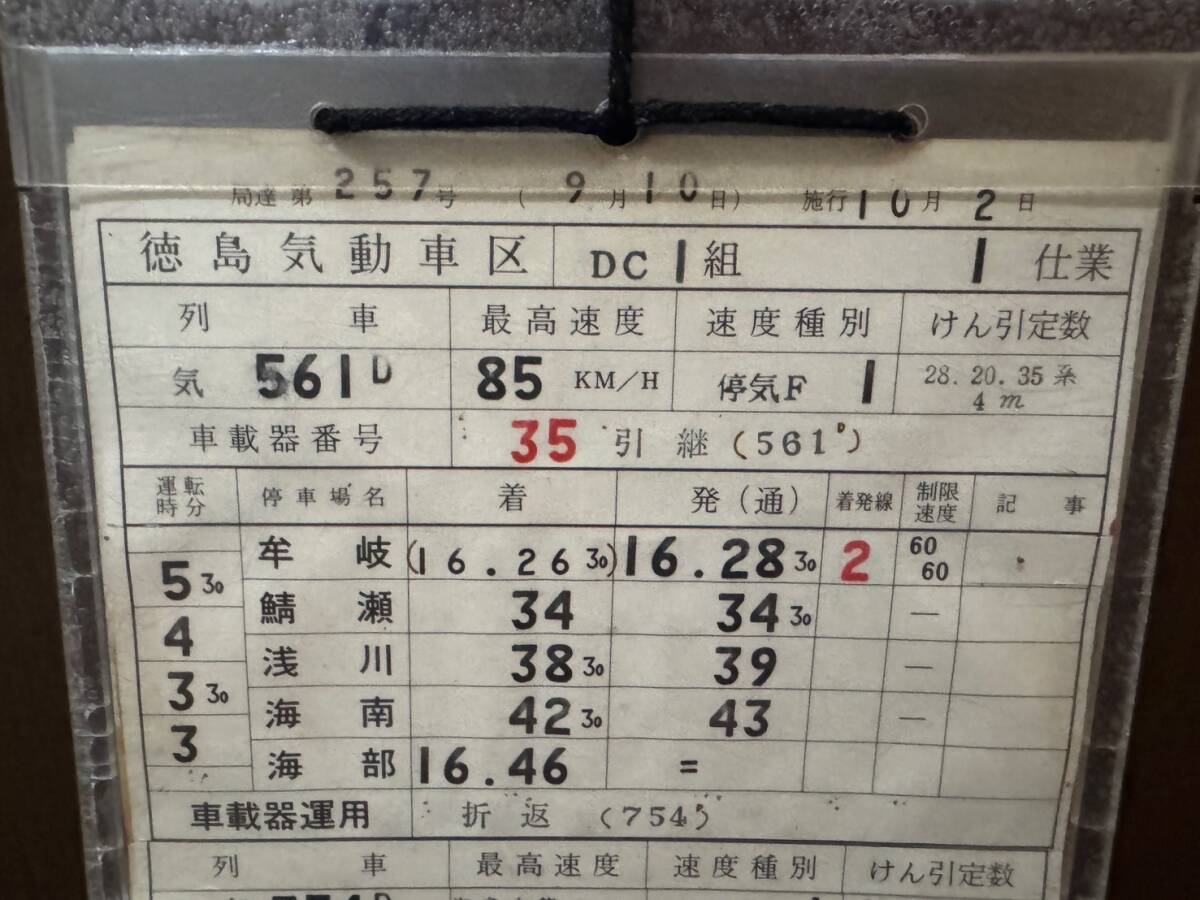 局達第257号 (9月10日) 施行10月2日
徳島気動車区 DC1組 1仕業
列車 最高速度 速度種別 けん引定数
気 561D 85 KM/H 停気F 1 28.20.35系
4m
車載器番号 35 引継(561D)
運転時分 停車場名 着 発(通) 着発線 制限速度 記事
牟岐 (16.26 30) 16.28 30 2 60 60
5 30
鯖瀬 34 34 30 —
4
浅川 38 30 39 —
3 30
海南 42 30 43 —
3
海部 16.46 =
車載器運用 折返 (754D)
列車 最高速度 速度種別 けん引定数